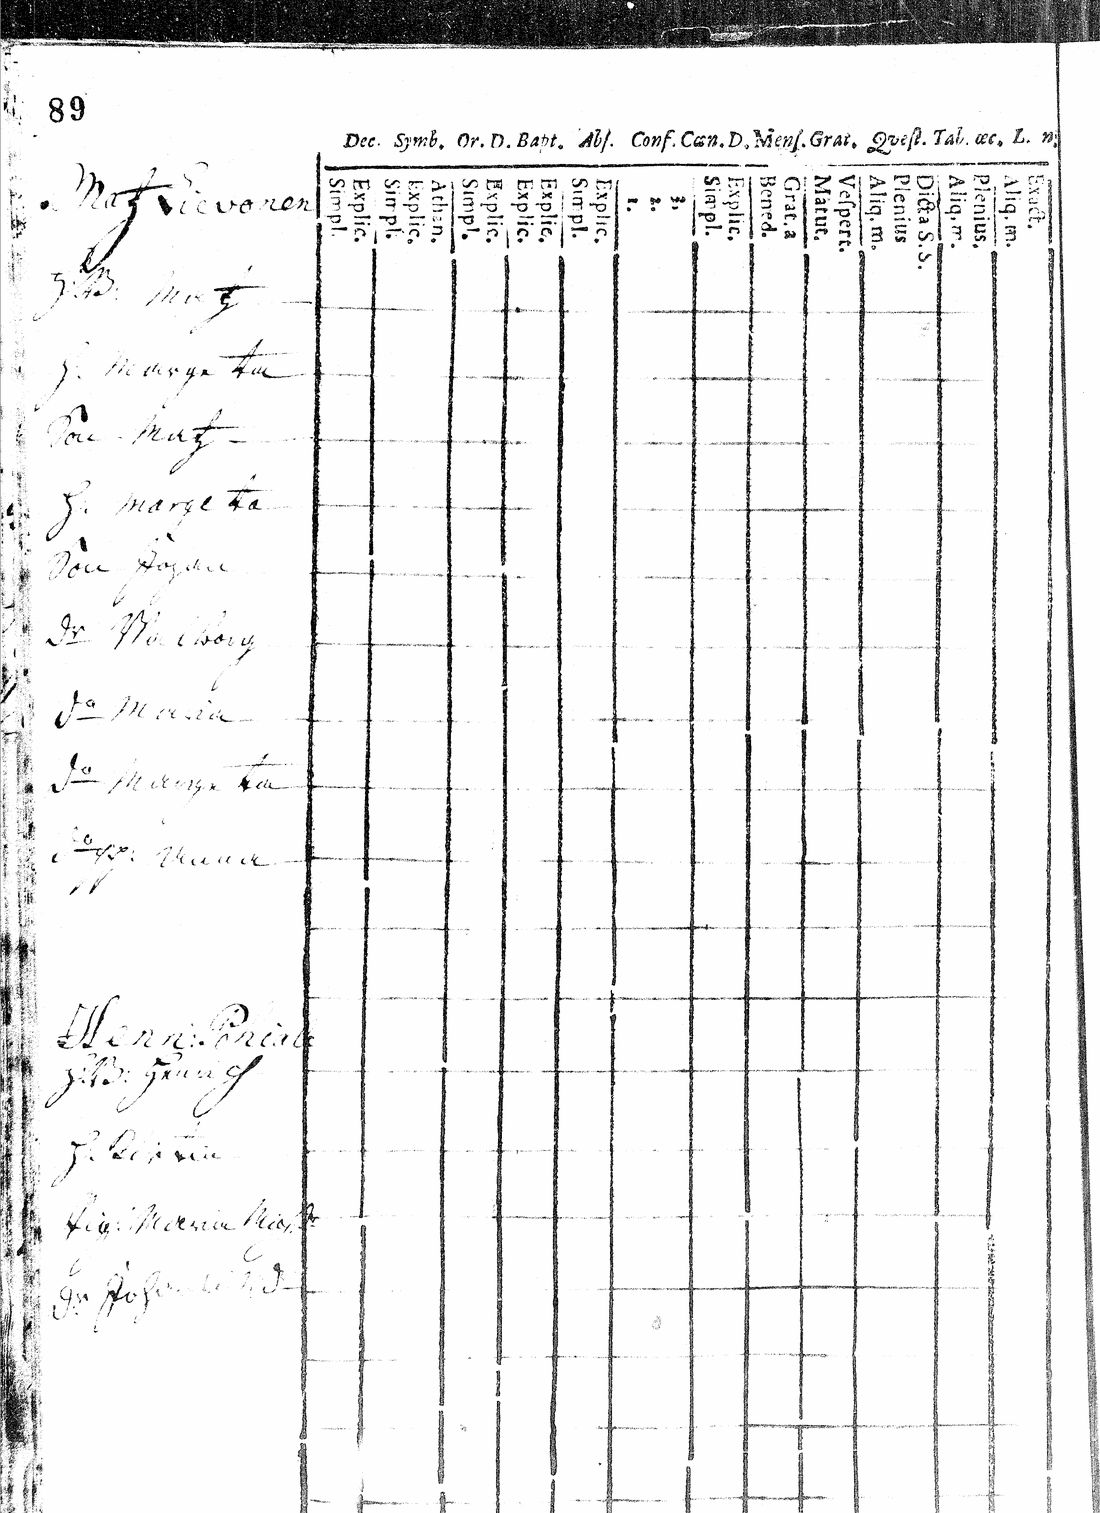 89
Dec. Symb. Or. D. Bapt. Abſ. Conf. Cœn. D. Menſ. Grat. Qvæſt. Tab. œc. L. n.
Simpl. Explic. Simpl. Explic. Athan. Simpl. Explic. Explic. Explic. Simpl. Explic. 1. 2. 3. Simpl. Explic. Bened. Grat. a Matut. Veſpert. Aliq. m. Plenius Dicta S. S. Aliq. m. Plenius. Aliq. m. Exact.
Matz Sievonen
H:B: Matz
H. Margeta
Son Matz
H. Margeta
Son Johan
dr Walborg
do Maria
do Margeta
do Anna
Henr:
H:B: Henrich
H.
Maria
dr